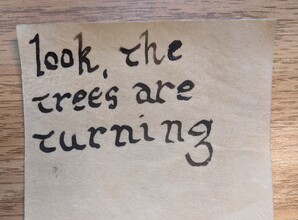 look, the
trees are
turning